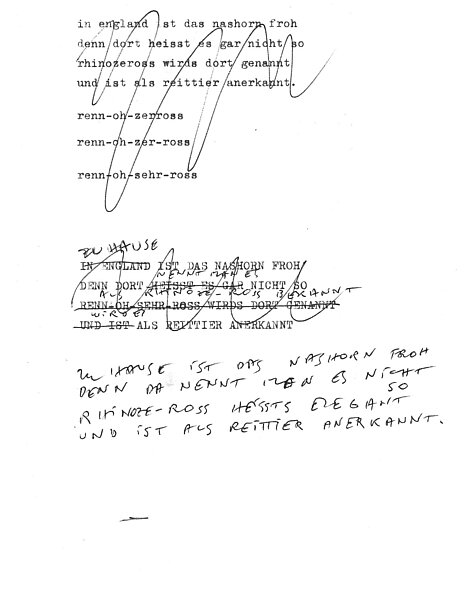 in england ist das nashorn froh
denn dort heisst es gar nicht so
rhinozeross wirds dort genannt
und ist als reittier anerkannt.
renn-oh-zerross
renn-oh-zer-ross
renn-oh-sehr-ross
ZU HAUSE
IN ENGLAND IST DAS NASHORN FROH
NENNT MAN ES
DENN DORT HEISST ES GAR NICHT SO
ALS RHINOZE-ROSS BEKANNT
RENN-OH-SEHR-ROSS WIRDS DORT GENANNT
WIRD ES
UND IST ALS REITTIER ANERKANNT
ZU HAUSE IST DAS NASHORN FROH
DENN DA NENNT MAN ES NICHT
SO
RHINOZE-ROSS HEISSTS ELEGANT
UND IST ALS REITTIER ANERKANNT.